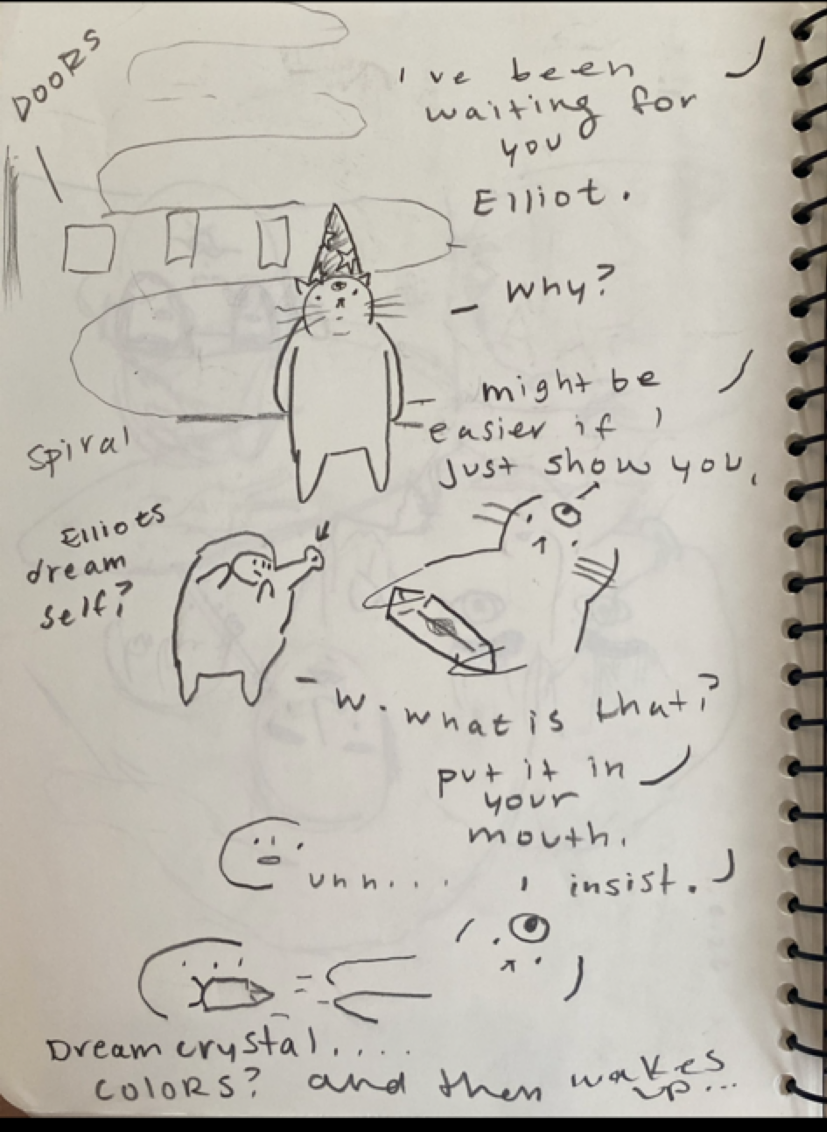 DOORS
I've been
waiting for
you
Elliot.
- Why?
might be
easier if I
just show you.
Spiral
Elliots
dream
self?
- W. what is that?
put it in
your
mouth.
uhh....
I insist.
Dream crystal....
COLORS? and then wakes
up...